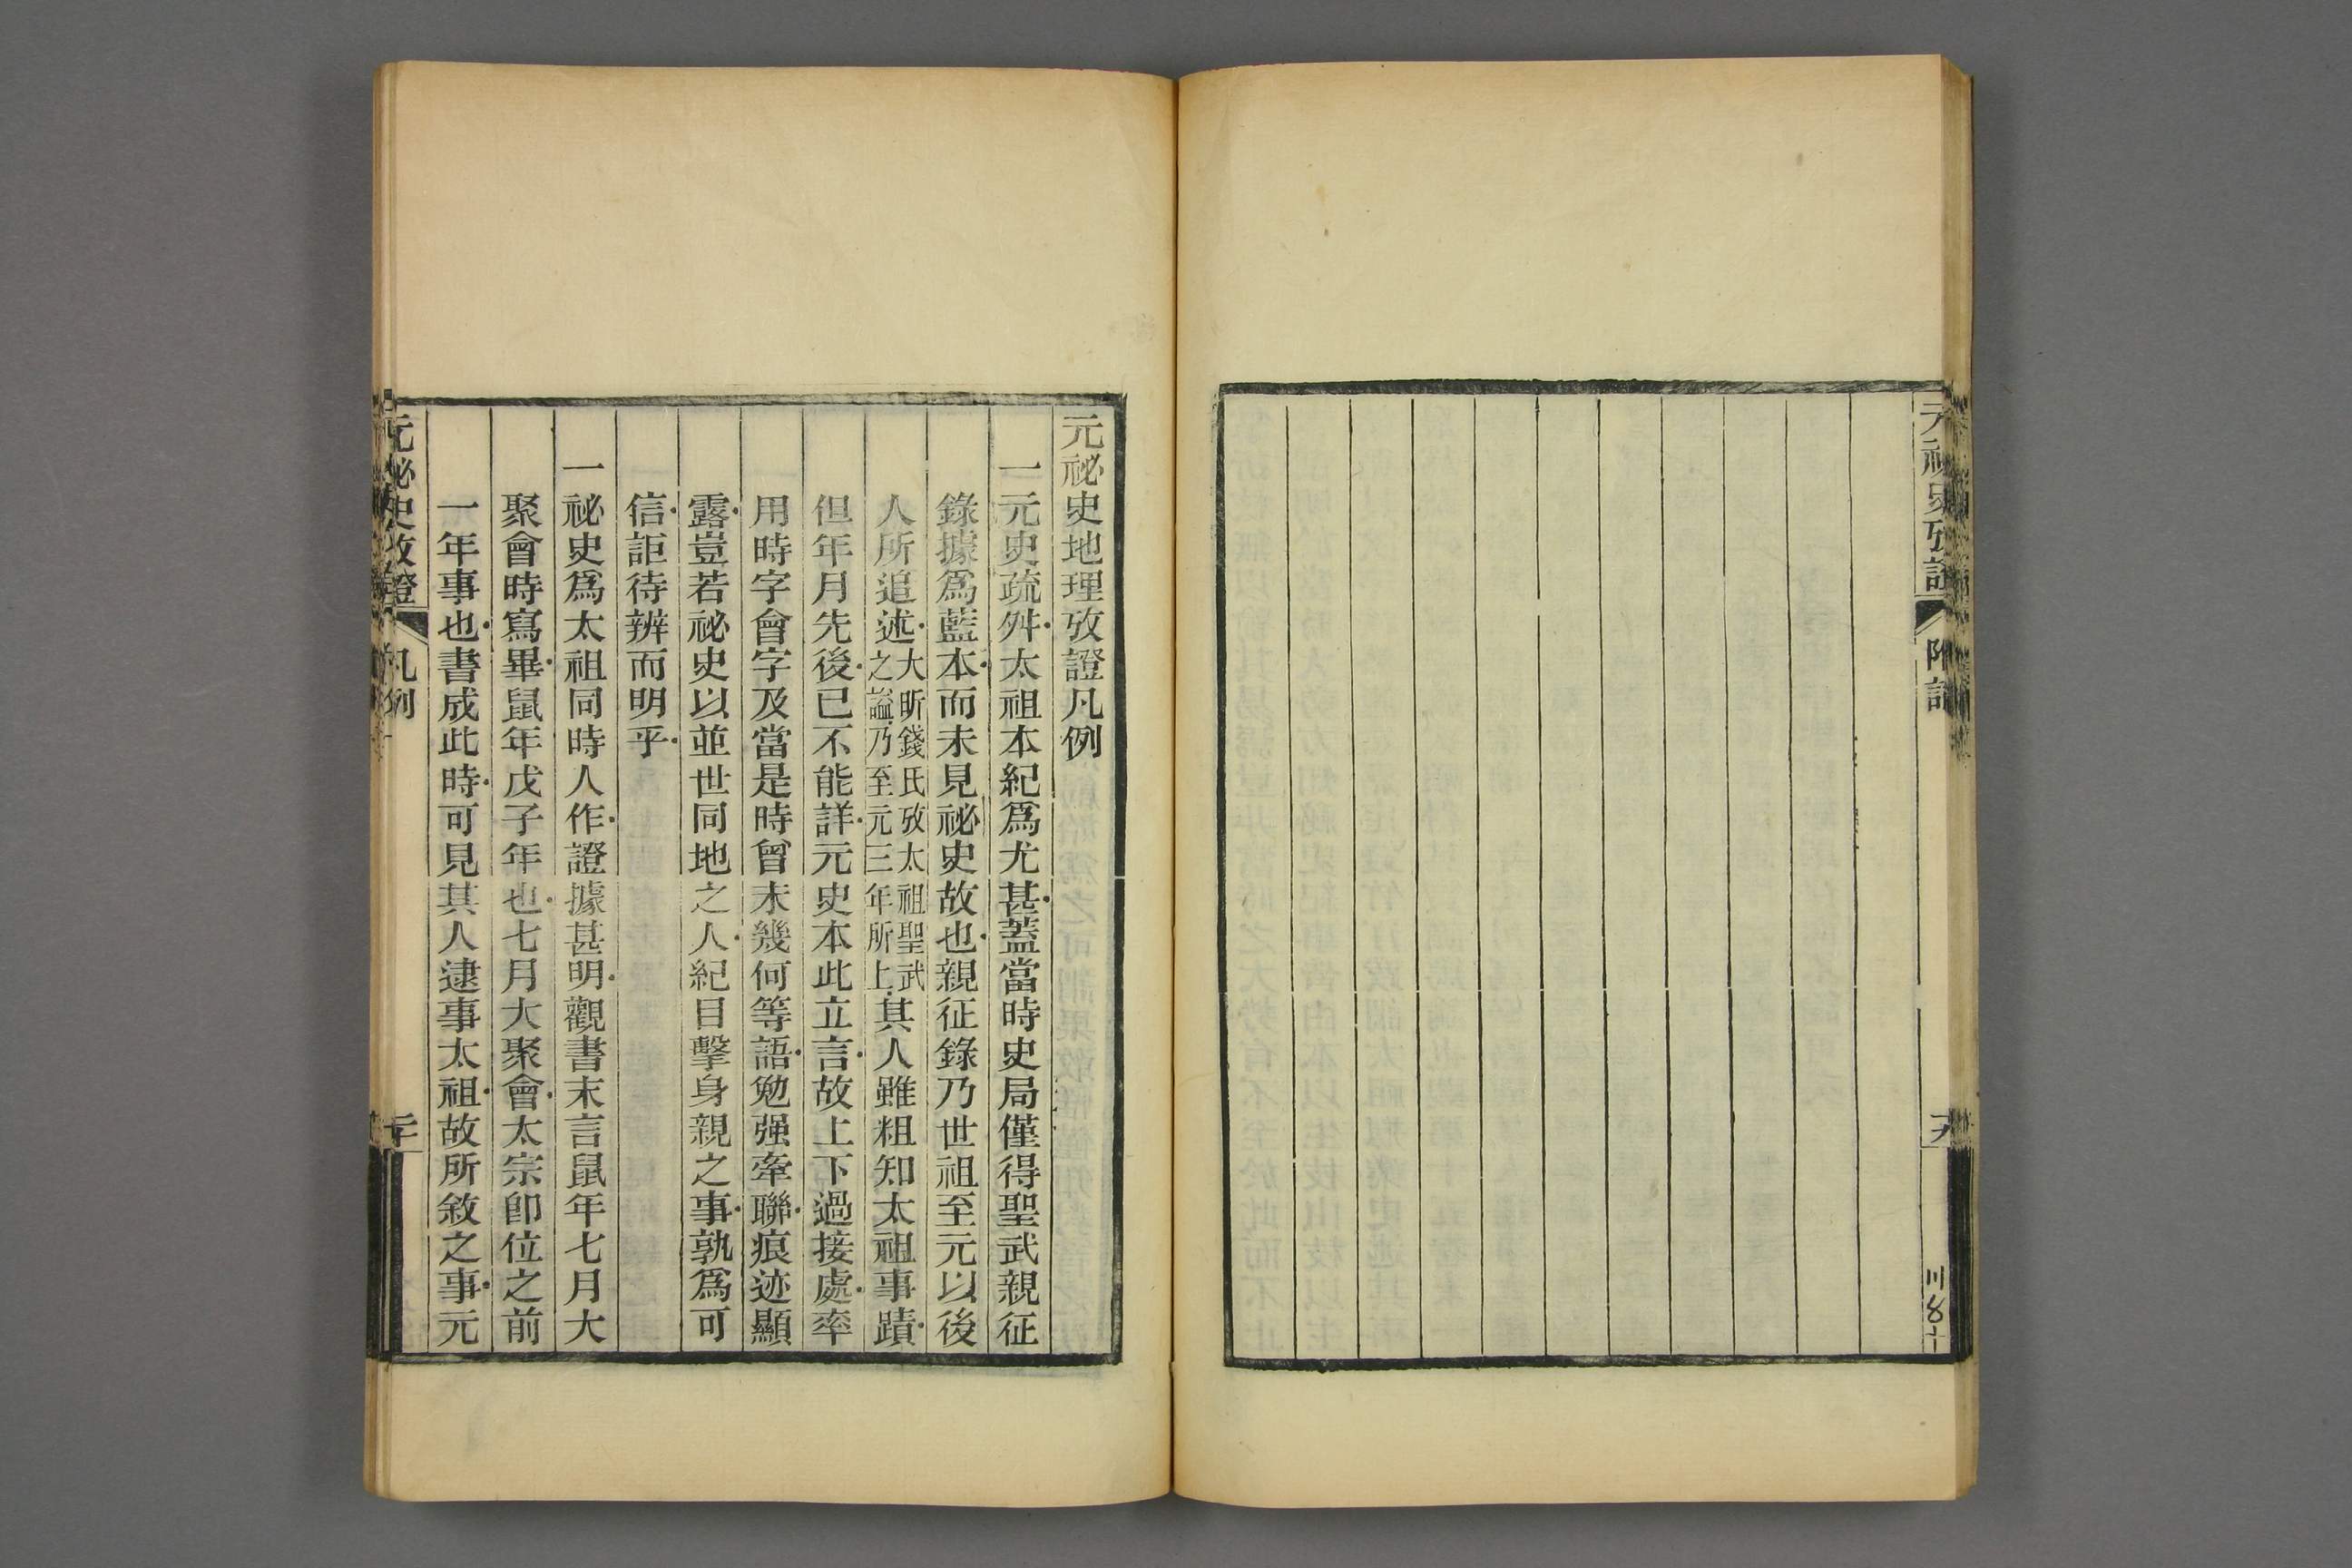 元祕史地理攷證凡例
一元史疏舛太祖本紀爲尤甚蓋當時史局僅得聖武親征
錄據爲藍本而未見祕史故也親征錄乃世祖至元以後
人所追述大昕錢氏攷太祖聖武之謚乃至元三年所上其人雖粗知太祖事蹟
但年月先後已不能詳元史本此立言故上下過接處率
用時字會字及當是時曾未幾何等語勉强牽聯痕迹顯
露豈若祕史以並世同地之人紀目擊身親之事孰爲可
信詎待辨而明乎
一祕史爲太祖同時人作證據甚明觀書末言鼠年七月大
聚會時寫畢鼠年戊子年也七月大聚會太宗卽位之前
一年事也書成此時可見其人逮事太祖故所敘之事元
元祕史攷證 凡例